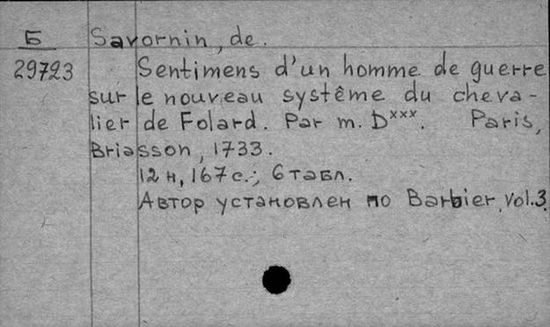 Б Savornin, de.
29723 Sentimens d'un homme de guerre
sur le nouveau système du cheva-
lier de Folard. Par m. Dˣˣˣ. Paris,
Briasson, 1733.
12 н, 167 с.; 6 табл.
Автор установлен по Barbier, vol.3.